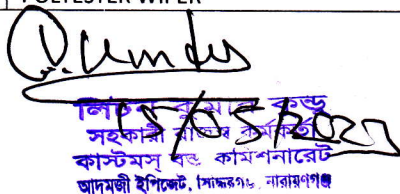 POLYESTER WIPER
লিটন কুমার কুন্ডু
সহকারী রাজস্ব কর্মকর্তা
কাস্টমস্ বন্ড কমিশনারেট
আদমজী ইপিজেড, সিদ্ধিরগঞ্জ, নারায়ণগঞ্জ